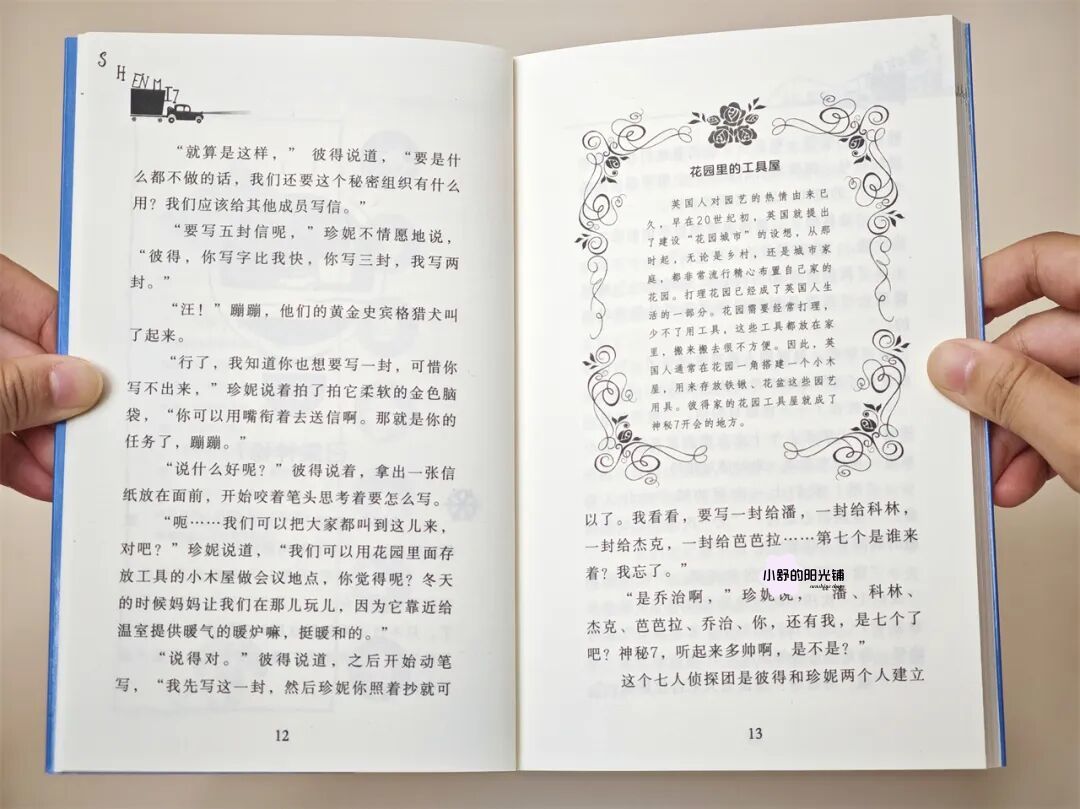 SHENMI7
“就算是这样，” 彼得说道，“要是什
么都不做的话，我们还要这个秘密组织有什么
用？我们应该给其他成员写信。”
“要写五封信呢，” 珍妮不情愿地说，
“彼得，你写字比我快，你写三封，我写两
封。”
“汪！” 蹦蹦，他们的黄金史宾格猎犬叫
了起来。
“行了，我知道你也想要写一封，可惜你
写不出来，” 珍妮说着拍了拍它柔软的金色脑
袋，“你可以用嘴衔着去送信啊。那就是你的
任务了，蹦蹦。”
“说什么好呢？” 彼得说着，拿出一张信
纸放在面前，开始咬着笔头思考着要怎么写。
“呃……我们可以把大家都叫到这儿来，
对吧？” 珍妮说道，“我们可以用花园里面存
放工具的小木屋做会议地点，你觉得呢？冬天
的时候妈妈让我们在那儿玩儿，因为它靠近给
温室提供暖气的暖炉嘛，挺暖和的。”
“说得对。” 彼得说道，之后开始动笔
写，“我先写这一封，然后珍妮你照着抄就可
12
花园里的工具屋
英国人对园艺的热情由来已
久，早在20世纪初，英国就提出
了建设“花园城市”的设想，从那
时起，无论是乡村，还是城市家
庭，都非常流行精心布置自己家的
花园。打理花园已经成了英国人生
活的一部分。花园需要经常打理，
少不了用工具，这些工具都放在家
里，搬来搬去很不方便。因此，英
国人通常在花园一角搭建一个小木
屋，用来存放铁锹、花盆这些园艺
用具。彼得家的花园工具屋就成了
神秘7开会的地方。
以了。我看看，要写一封给潘，一封给科林，
一封给杰克，一封给芭芭拉……第七个是谁来
着？我忘了。”
小舒的阳光铺
“是乔治啊，” 珍妮说，“潘、科林、
杰克、芭芭拉、乔治、你，还有我，是七个了
吧？神秘7，听起来多帅啊，是不是？”
这个七人侦探团是彼得和珍妮两个人建立
13